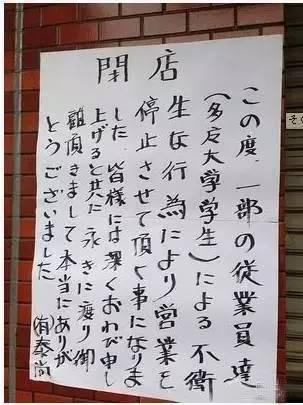 閉店
この度 一部の従業員達
(多摩大学学生)による不衛
生な行為により営業を
停止させて頂く事になりま
した 皆様には深くおわび申し
上げると共に永きに渡り御
顧頂きまして本当にありが
とうございました
(有)泰尚
そ